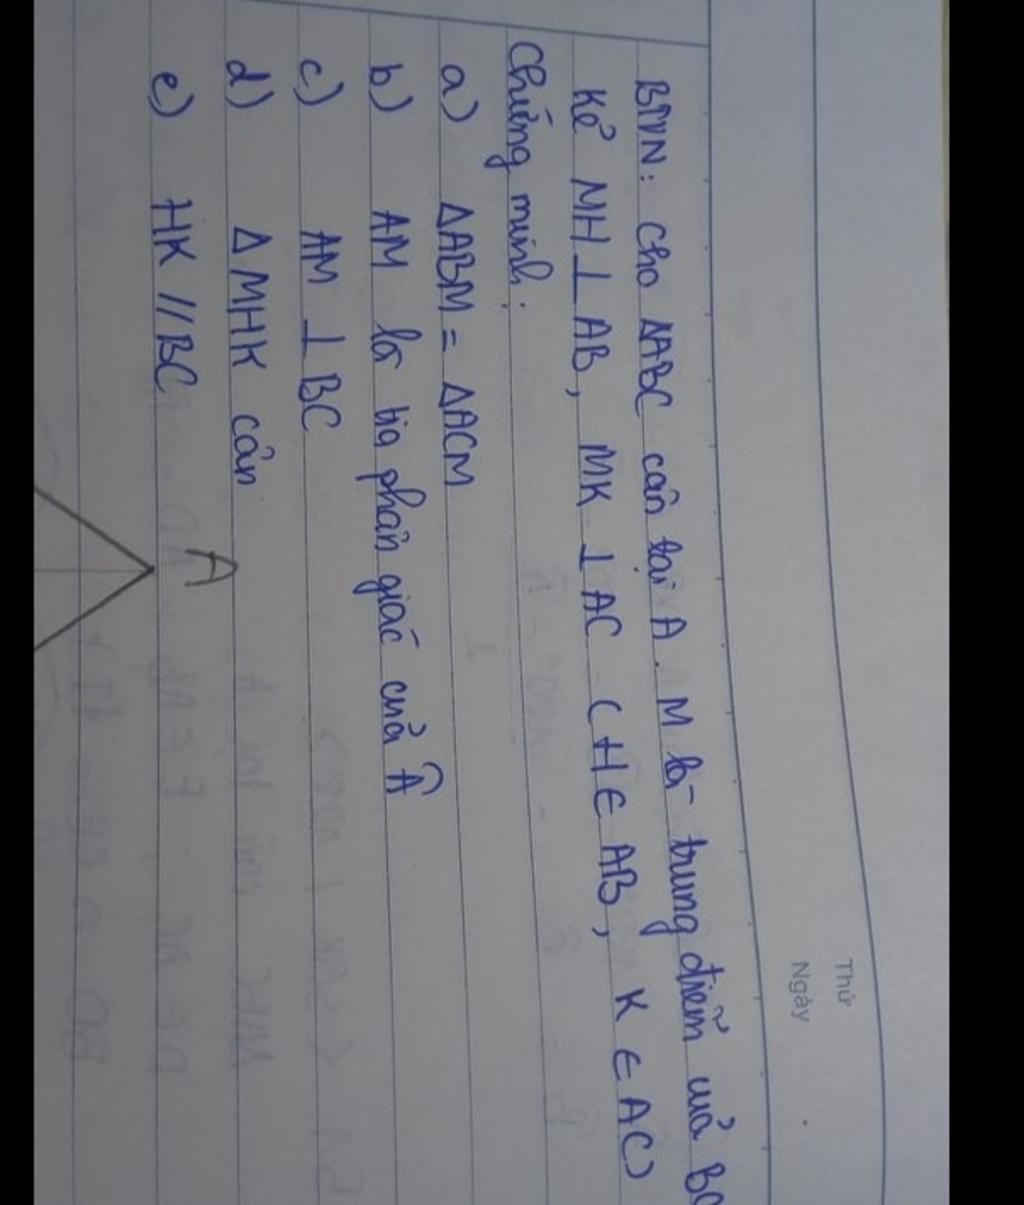 Thứ
Ngày
BTVN: Cho ΔABC cân tại A. M là trung điểm của BC
Kẻ MH ⊥ AB, MK ⊥ AC (H ∈ AB, K ∈ AC)
Chứng minh:
a) ΔABM = ΔACM
b) AM là tia phân giác của Â
c) AM ⊥ BC
d) Δ MHK cân
e) HK // BC
A